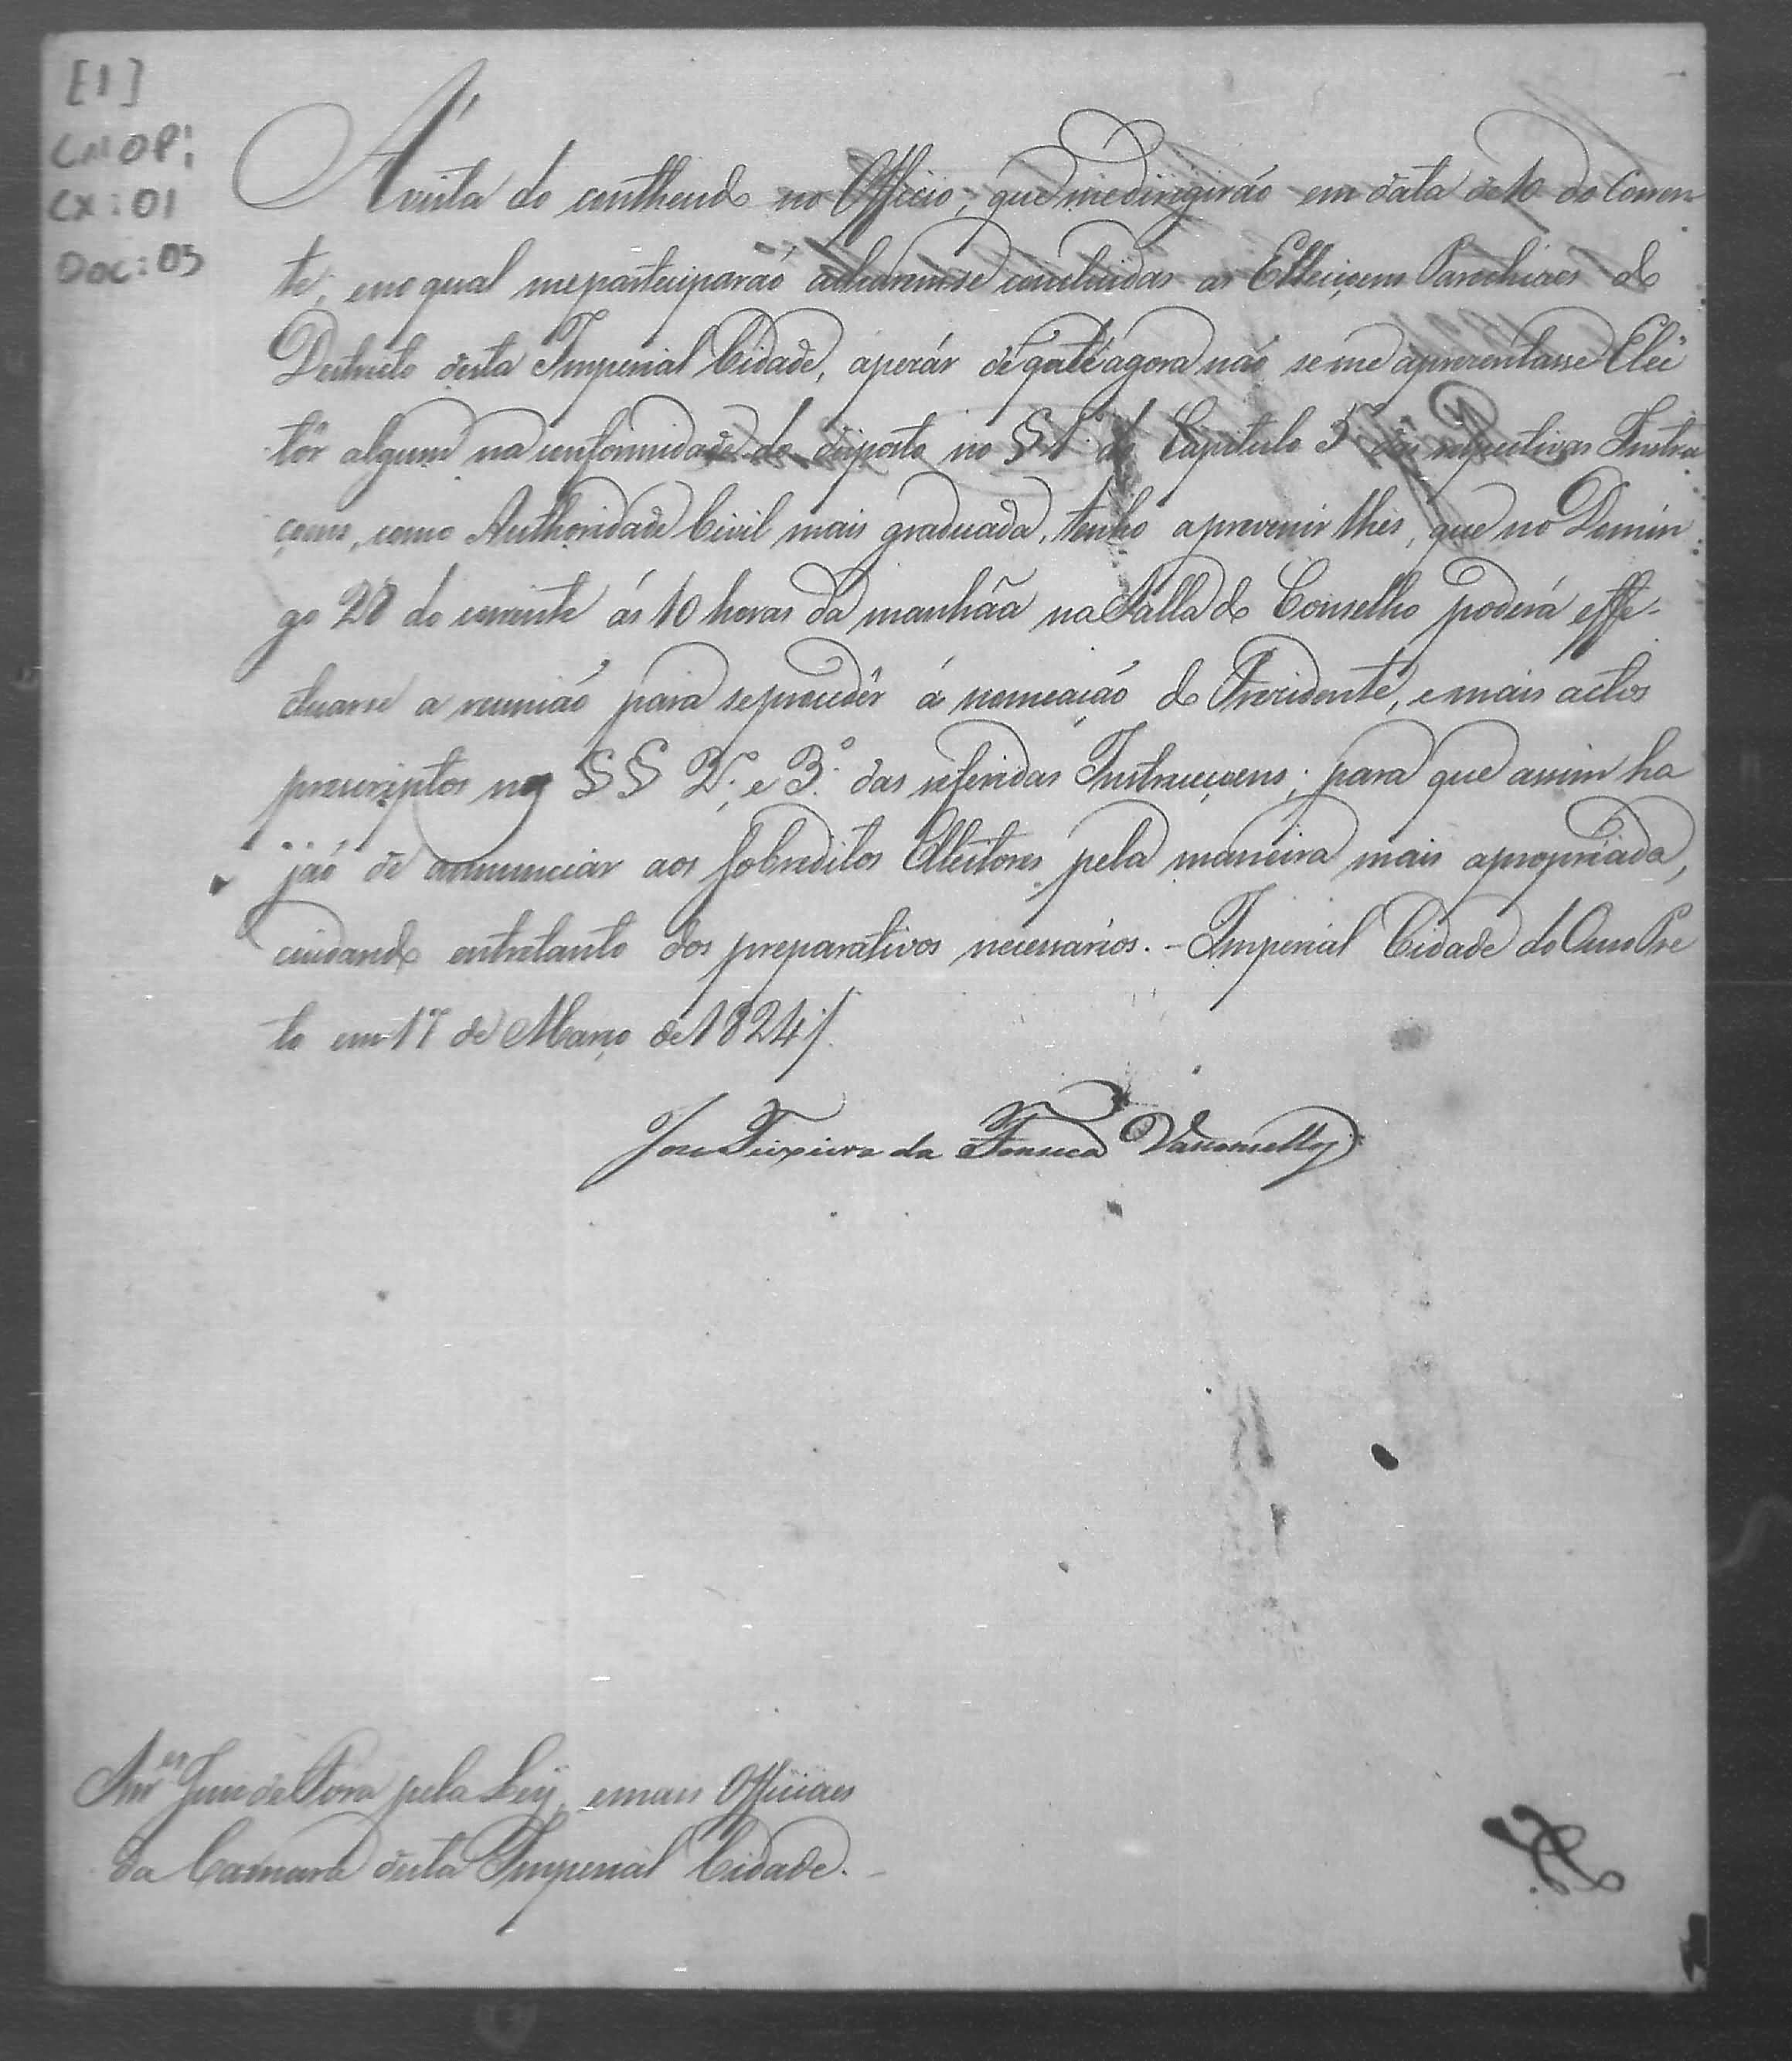 [1]
CMOP:
CX: 01
Doc: 05
Á vista do conthendo no Officio, que me dirigirão em data de 10 do Corren
te, e no qual me participarão acharem-se concluidas as Elleiçoens Parochiaes do
Destricto desta Imperial Cidade, apezár de q̃ até agora não se me aprezentasse Elei
tôr algum na conformidade do disposto no § 1º do Capitulo 5º das respectivas Instru
çoens, como Authoridade Civil mais graduada, tenho a prevenir lhes, que no Domin
go 28 do corrente ás 10 horas da manhãa na Salla do Conselho poderá effe-
ctuarse a reunião para se procedêr á nomeação do Prezidente, e mais actos
prescriptos nos §§ 2º, e 3º das referidas Instrucçoens; para que assim ha
jão de annunciar aos sobreditos Elleitores pela maneira mais apropriada,
cuidando entretanto dos preparativos necessarios. - Imperial Cidade do Ouro Pre
to em 17 de Março de 1824 /.
Jose Teixeira da Fonseca Vasconcellos
Snr.es Juiz de Fora pela Ley, e mais Officiaes
da Camara desta Imperial Cidade. -